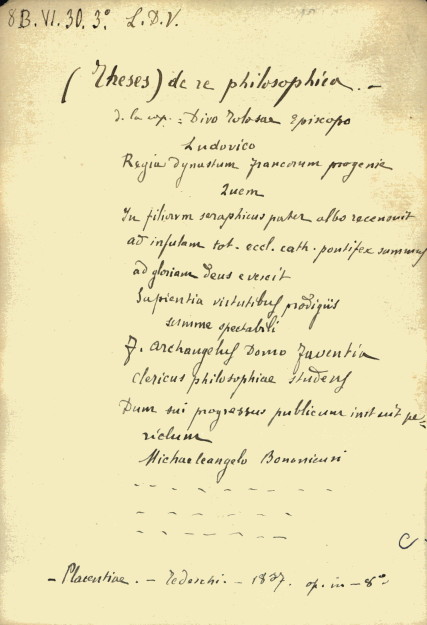 8B. VI. 30. 3º L. D. V.
(Theses) de re philosophica. -
Divo Tolosae Episcopo
Ludovico
Regia dynastum francorum progenie
Quem
In filiorum seraphicus pater albo recensuit
ad infulam tot. eccl. cath. pontifex summus
ad gloriam Deus evexit
Sapientia virtutibus prodigiis
summe spectabili
F. Archangelus Domo Faventia
clericus philosophiae studens
Dum sui progressus publicum instituit pe-
riclum
Michaeleangelo
- Placentiae. - Tedeschi. - 1837. op. in - 8º